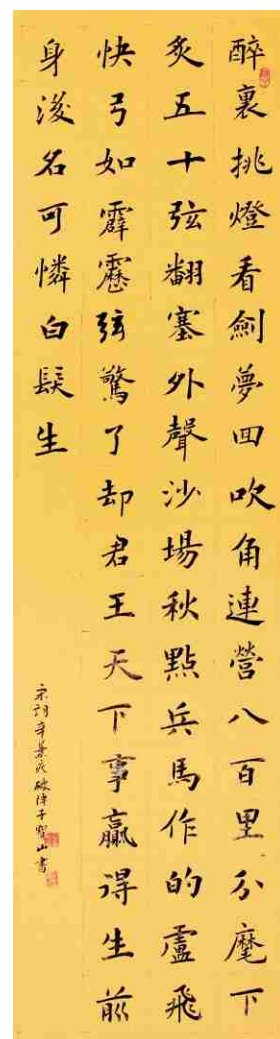 醉裏挑燈看劍夢回吹角連營八百里分麾下
炙五十弦翻塞外聲沙場秋點兵馬作的盧飛
快弓如霹靂弦驚了却君王天下事贏得生前
身後名可憐白髮生
宋詞辛棄疾破陣子寶山書